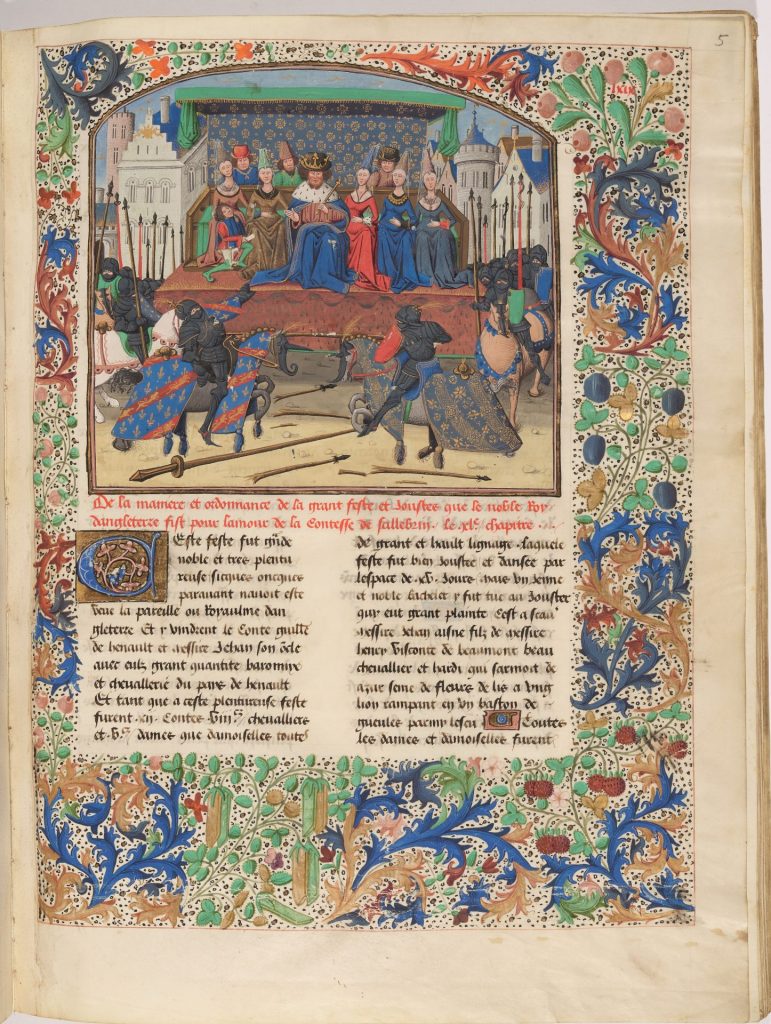 5
xix
De la maniere et ordonnance de la grant feste et Joustes que le noble Roy
dangleterre fist pour lamour de la Contesse de sallebrin . le .xl.e chapitre .
Ceste feste fut grãde
noble et tres plentu
reuse sicques oncques
parauant nauoit este
veue la pareille ou Royaulme dan
gleterre Et y vindrent le Conte guille
de henault et messire Jehan son õcle
auec eulz grant quantite baronnix
et cheuallerie du pays de henault
Et tant que a ceste plentureuse feste
furent .xij. Contes viij.c cheualliers
et v.c dames que damoiselles toutes
de grant et hault lignage . laquele
feste fut bien Joustee et dansee par
lespace de .xv. Jours . mais vn Jenne
et noble bacheler y fut tue au Jouster
qui eut grant plainte Cest a scau
messire Jehan aisne filz de messire
henry visconte de beaumont beau
cheuallier et hardi qui sarmoit de
azur seme de fleurs de lis a vng
lion rampant et vn baston de
gueules parmy lescu Toutes
les dames et damoiselles furent